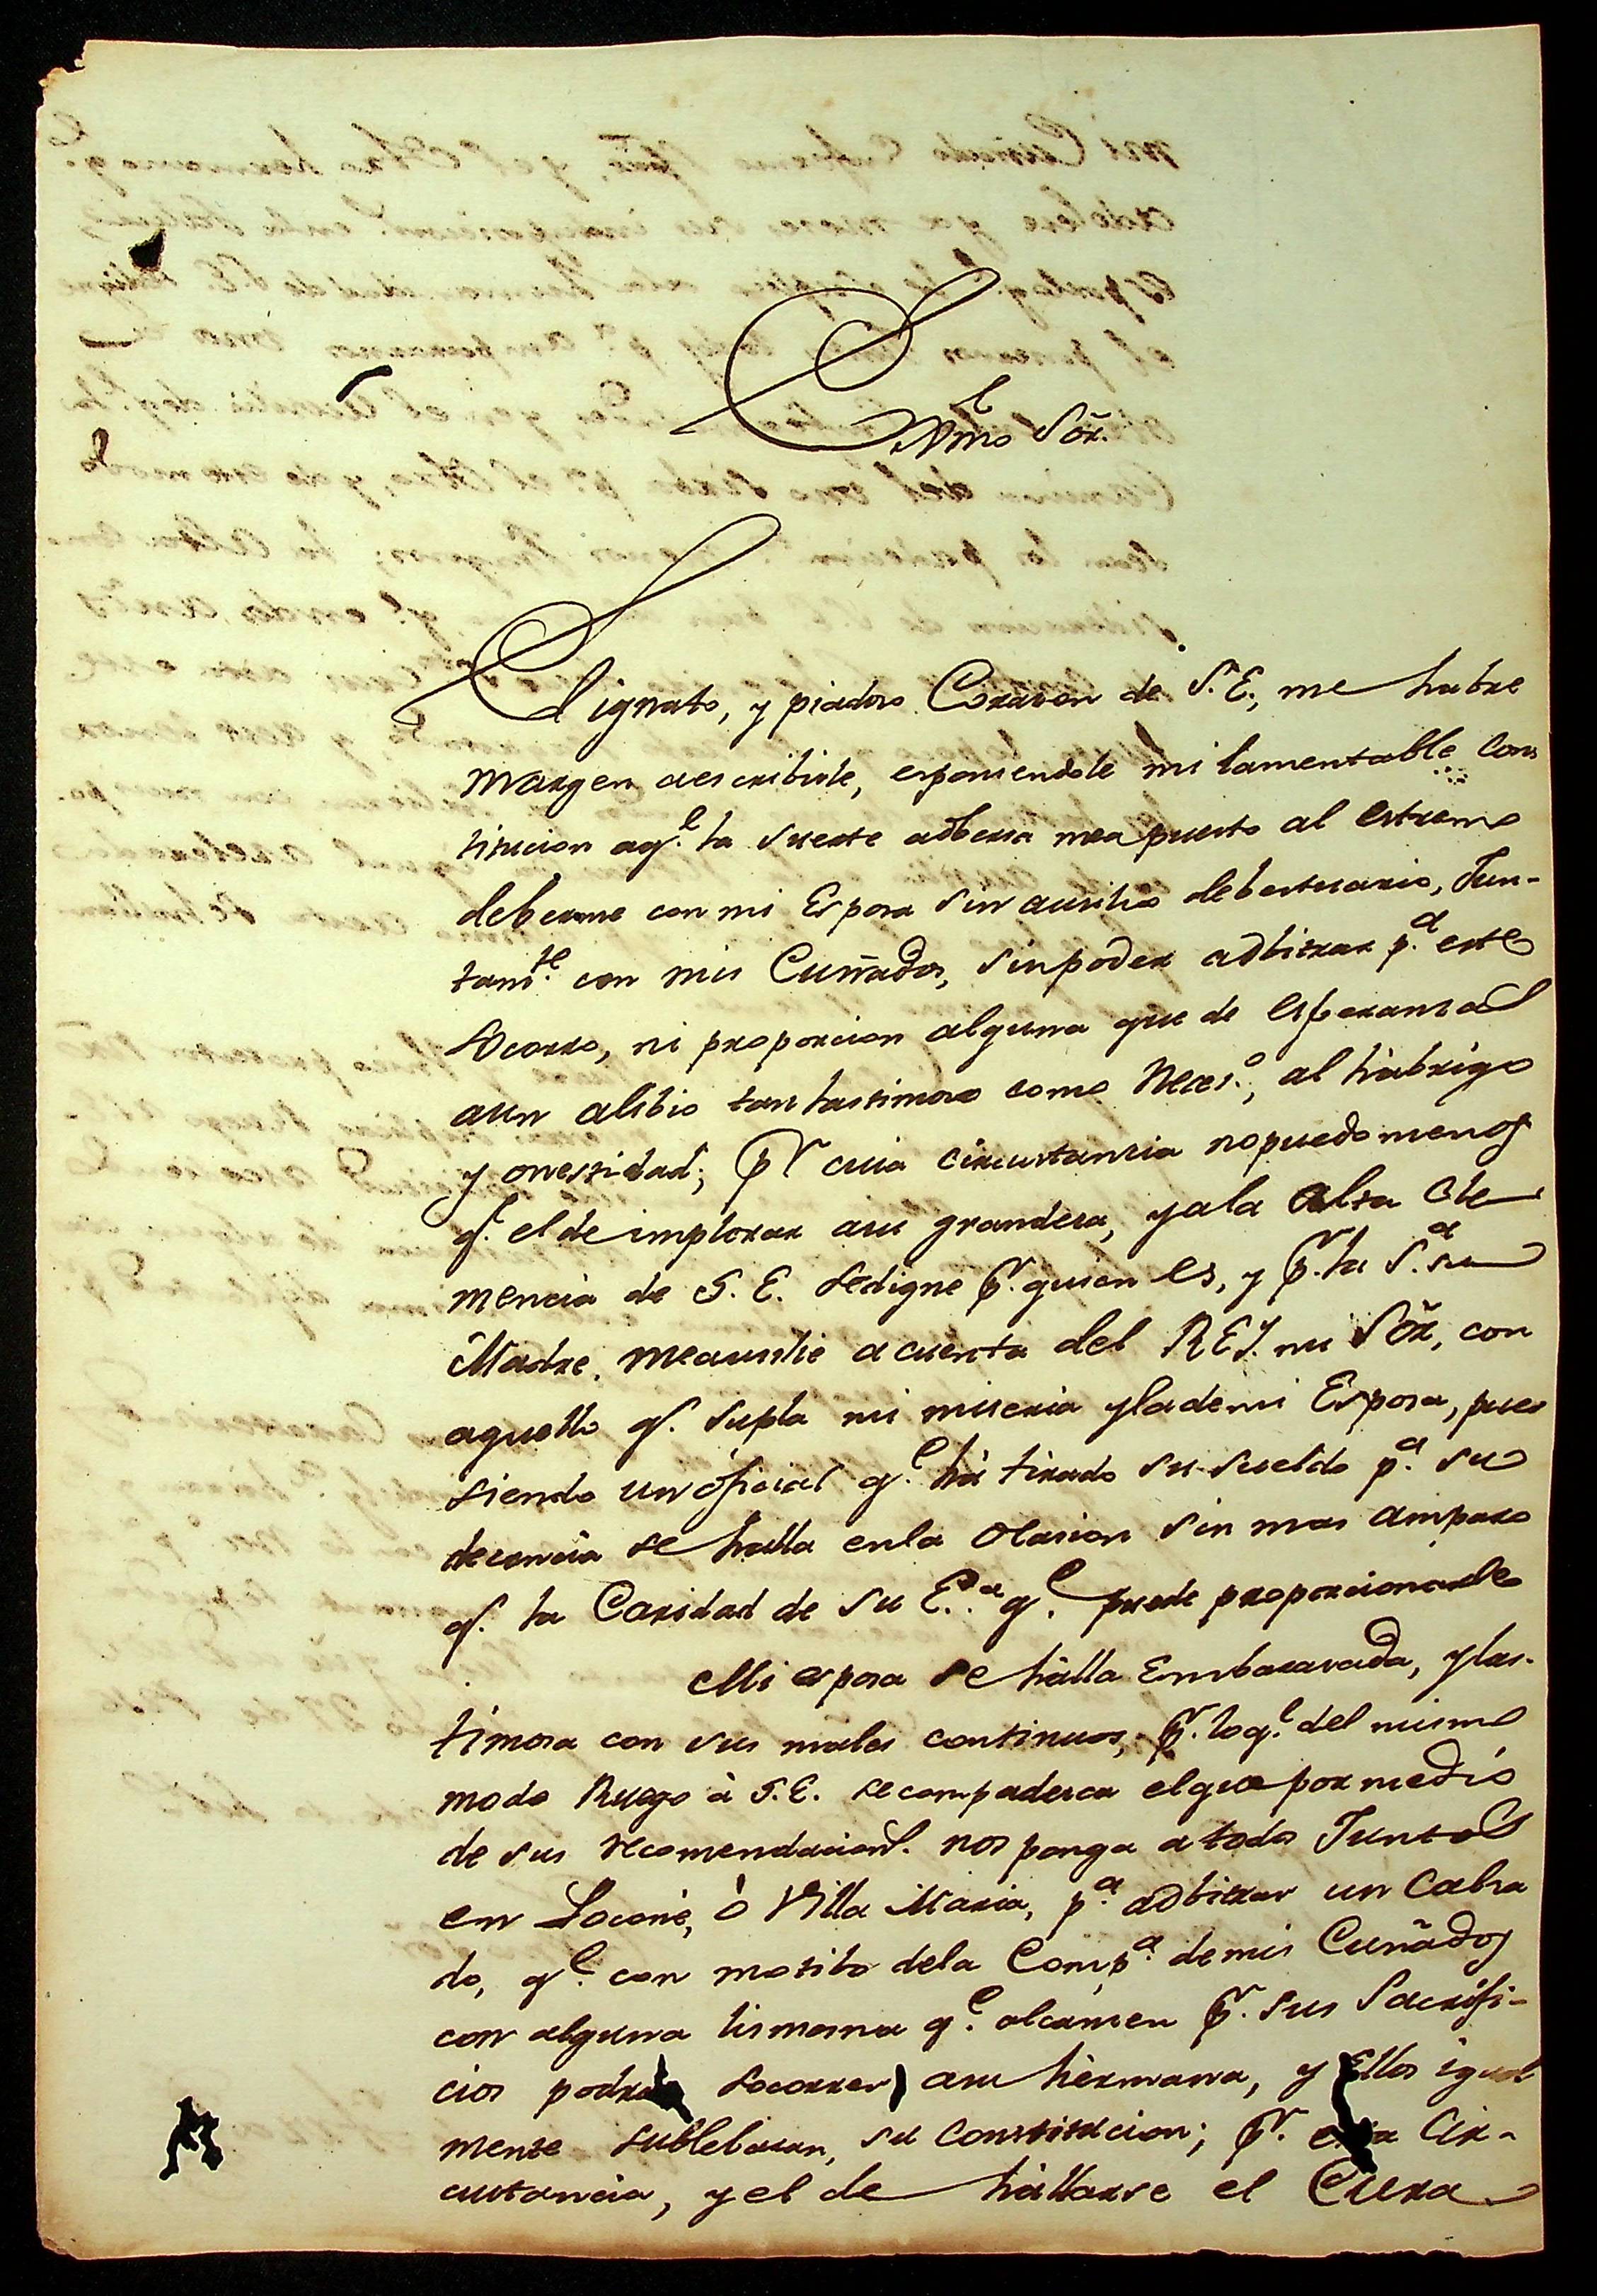 Exmo Sõr.
El ignato, y piadoso Corason de S.E., me habre
margen aescribirle, esponiendole mi lamentable Cons
titucion aq.e la suerte adbersa mea puesto al estremo
deberme con mi Esposa sin ausilio debestuario, Jun-
tam.te con mis Cuñados, sinpoder adbitrar p.a este
socorro, ni proporcion alguna que de esperansa
aun alibio tan lastimoso como Neces.o, al hàbrigo
y onestidad; p.r cuia circustansia nopuedo menos
q.e elde implorar asu grandesa, yala alta Cle
mencia de S.E. sedigne p.r quien es, y p.r la S.ra su
Madre, meausilie a cuenta del REY mi Sõr, con
aquello q.e supla mi miseria ylademi Esposa, pues
siendo un òficial q.e hà tirado su sueldo p.a su
decencia se halla enla ocasion sin mas amparo
q.e la Caridad de su E.a q.e puede proporcionarle
Mi esposa se hàlla Embarasada, ylas-
timosa con sus males continuos, p.r loq.e del mismo
modo Ruego à S.E. secompadesca elque por medio
de sus recomendacion.s nos ponga a todos Juntos
en Locone, ò Villa Maria, p.a adbitrar un Calsa
do, q.e con motibo dela Comp.a de mis Cuñados
con alguna lismosna q.e alcansen p.r sus Sacrifi-
cios podran socorrer asu hèrmana, y Ellos igual
mente sublebaran, su Constitucion; p.r esta Cir-
custancia, yel de hàllarse el Cura